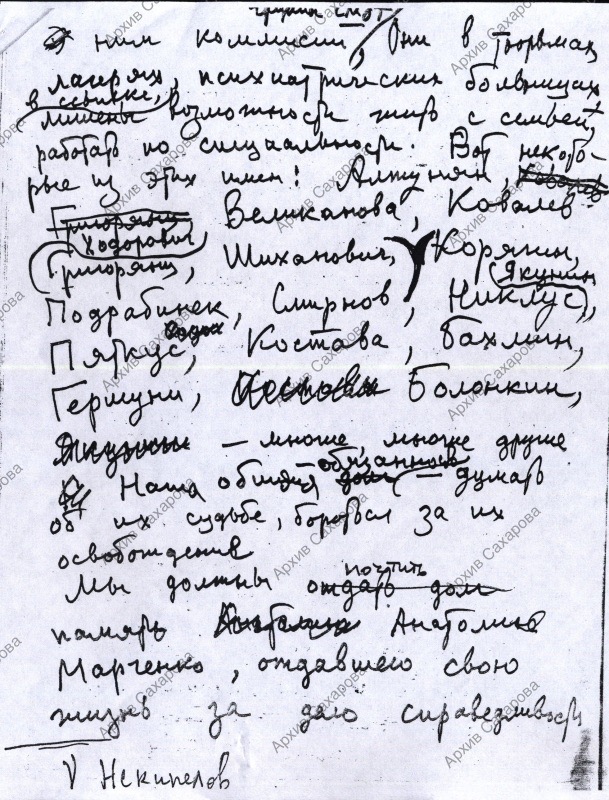 группы СМОТ
ним комиссии, Они в тюрьмах,
лагерях, психиатрических больницах,
в ссылке,
лишены возможности жить с семьей,
работать по специальности. Вот некото-
рые из этих имен: Алтунян, Ковалев
Григорянц Великанова, Ковалев
Ходорович
Григорянц, Шиханович, Корягин,
Якунин
Подрабинек, Смирнов, Никлус,
Пяткус, Костава, Бахмин,
Гершуни, Болонкин,
Якунин — многие, многие другие
Наша общая обязанность — думать
об их судьбе, бороться за их
освобождение
Мы должны почтить отдать дол
память Анатолия Анатолия
Марченко, отдавшего свою
жизнь за дело справедливости
V Некипелов
Архив Сахарова